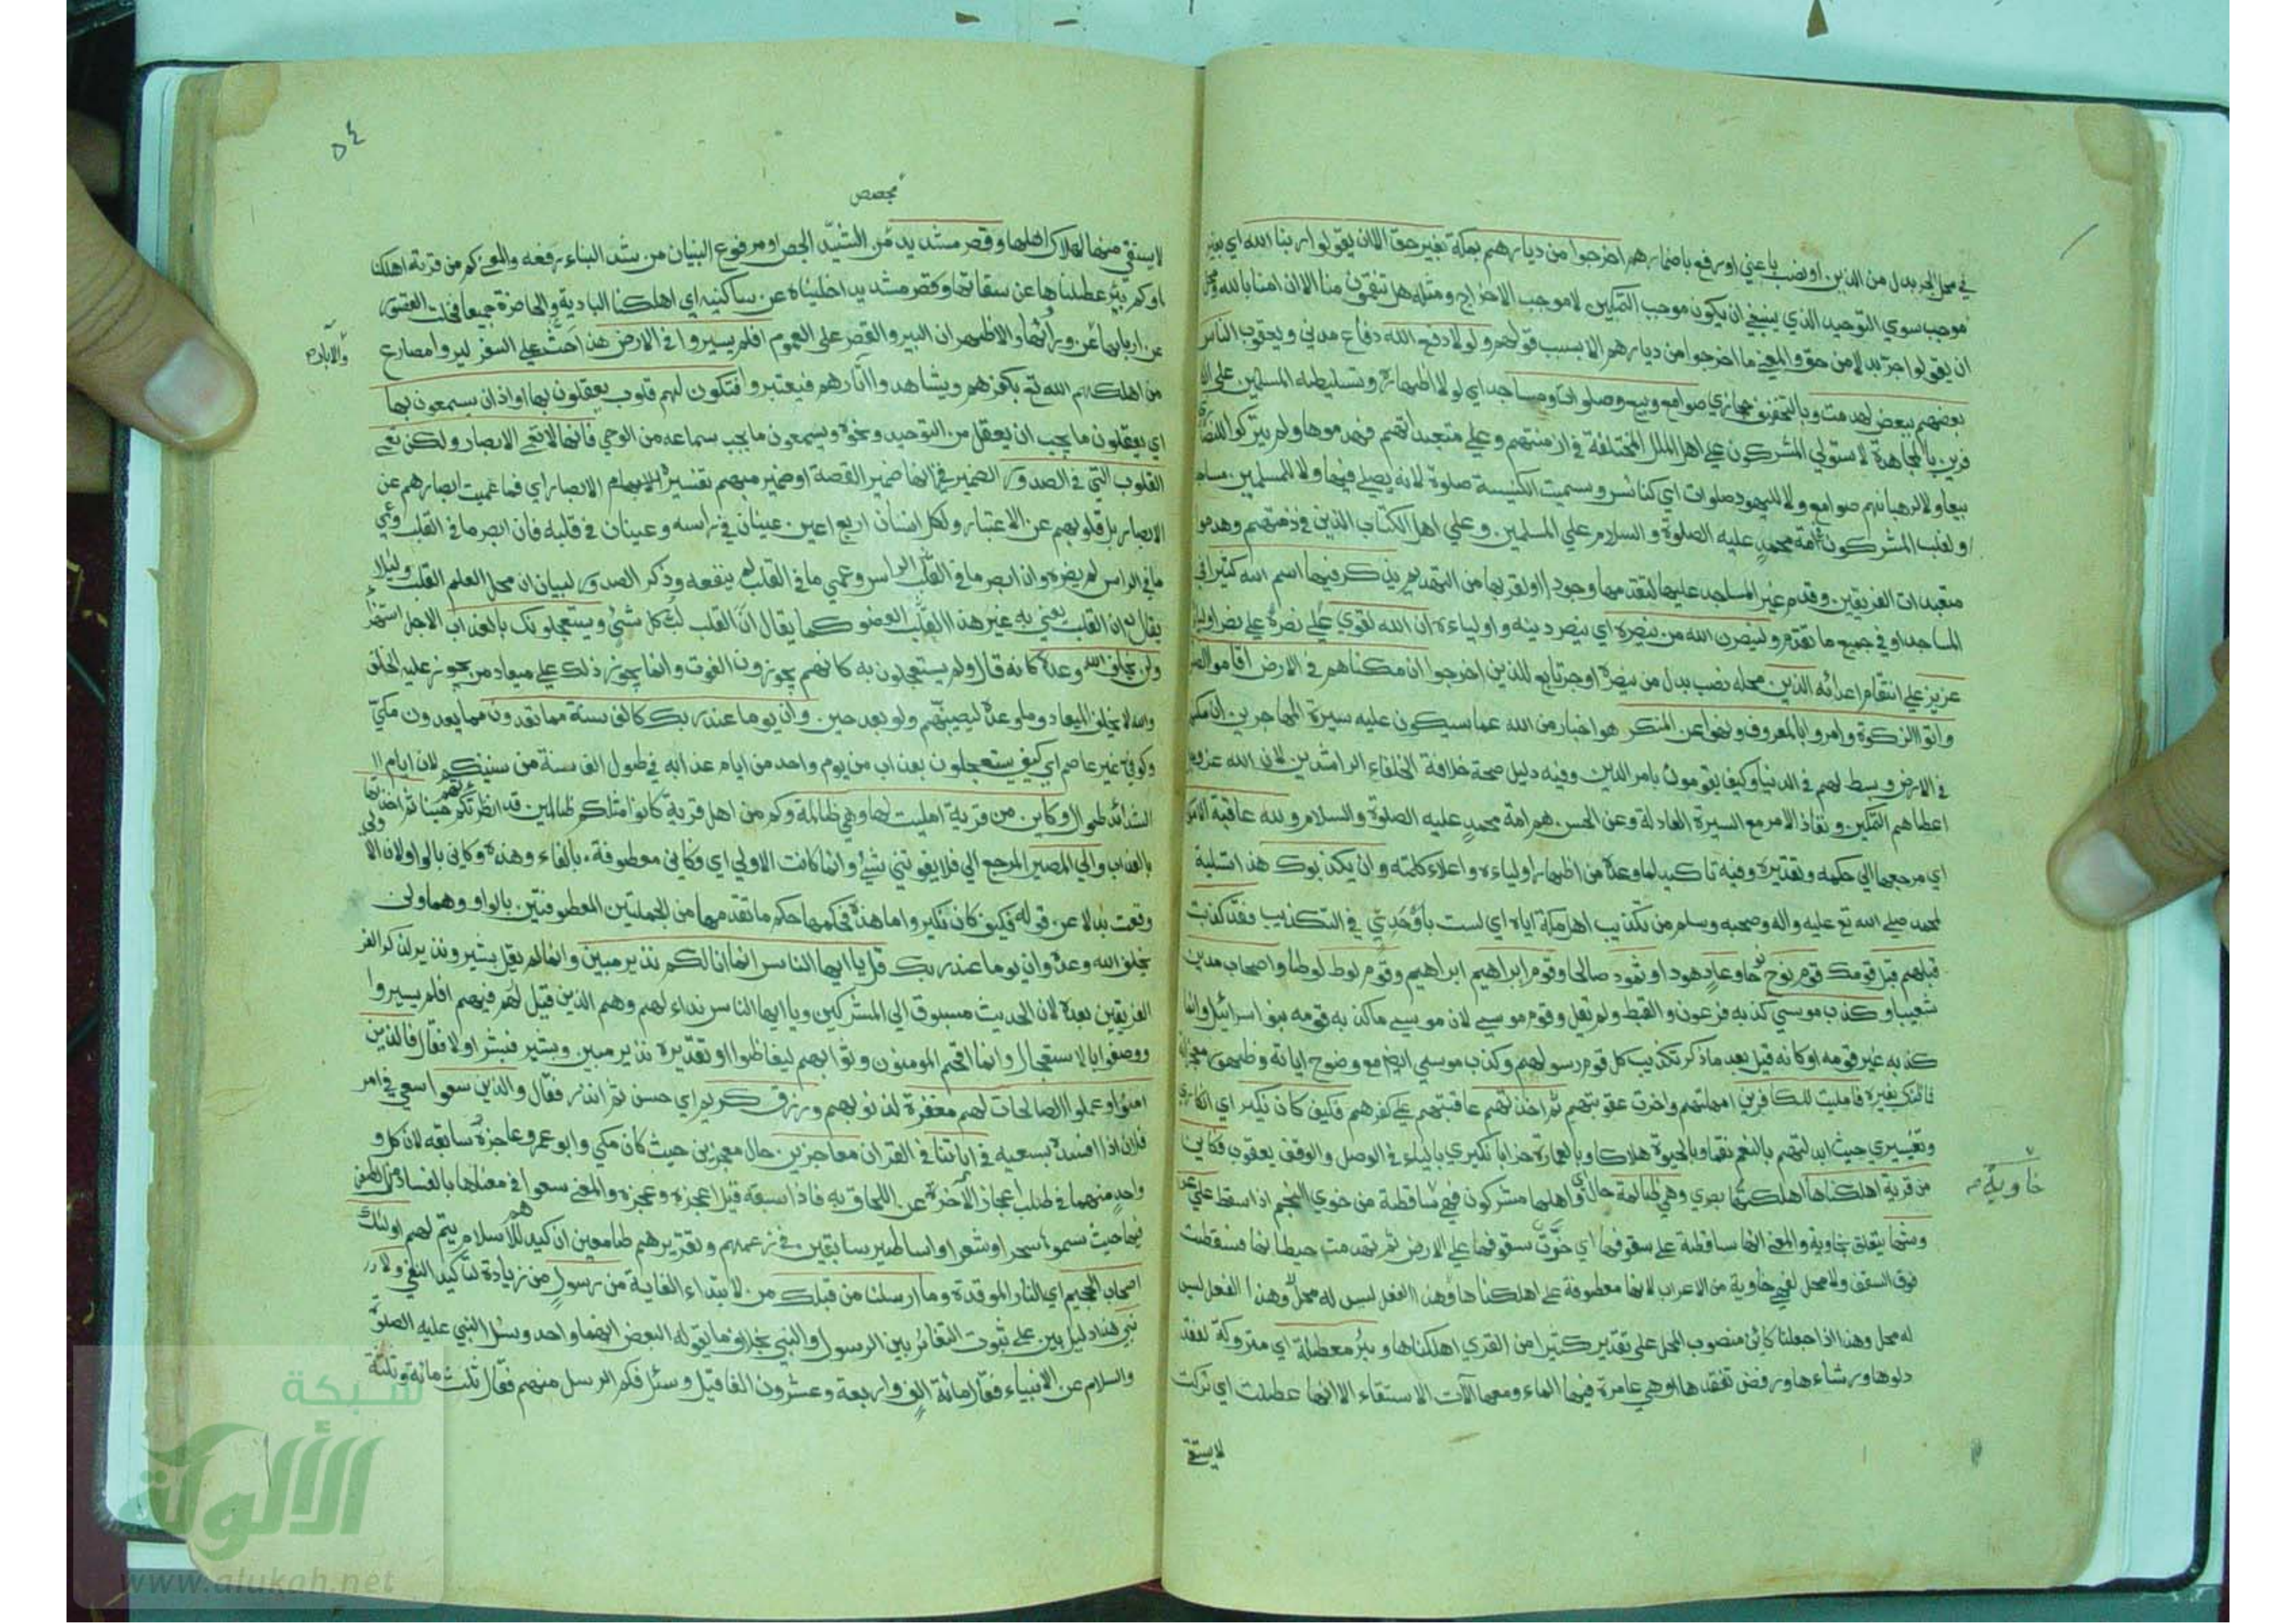 في محل الجر بدل من الذين او نصب باعني او رفع باضمارهم اخرجوا من ديارهم بمكة بغير حق الا ان يقولوا ربنا الله اي بغير
موجب سوي التوحيد الذي ينبغي ان يكون موجب التمكين لا موجب الاخراج ومثله هل تنقمون منا الا ان امنا بالله ومحل
ان يقولوا جر بدلا من حق والمعني ما اخرجوا من ديارهم الا بسبب قولهم ولولا دفع الله دفاع مدني ويعقوب الناس
بعضهم ببعض لهدمت وبالتخفيف حجازي صوامع وبيع وصلوات ومساجد اي لولا اظهاره وتسليطه المسلمين علي الكا
فرين بالمجاهدة لاستولي المشركون علي اهل الملل المختلفة في ازمنتهم وعلي متعبداتهم فهدموها ولم يتركوا للنصاري
بيعا ولا لرهبانهم صوامع ولا لليهود صلوات اي كنائس وسميت الكنيسة صلوة لانه يصلي فيها ولا للمسلمين مساجد
او لغلب المشركون في امة محمد عليه الصلوة والسلام علي المسلمين وعلي اهل الكتاب الذين في ذمتهم وهدموا
متعبدات الفريقين وقدم غير المساجد عليها لتقدمها وجودا او لقربها من التهديم يذكر فيها اسم الله كثيرا في
المساجد او في جميع ما تقدم ولينصرن الله من ينصره اي ينصر دينه واولياءه ان الله لقوي علي نصرة علي نصر اوليائه
عزيز علي انتقام اعدائه الذين محله نصب بدل من ينصره او جر تابع للذين اخرجوا ان مكناهم في الارض اقاموا الصلوة
واتوا الزكوة وامروا بالمعروف ونهوا عن المنكر هو اخبار من الله عما سيكون عليه سيرة المهاجرين ان مكنهم
في الارض وبسط لهم في الدنيا وكيف يقومون بامر الدين وفيه دليل صحة خلافة الخلفاء الراشدين لان الله عز وجل
اعطاهم التمكين ونفاذ الامر مع السيرة العادلة وعن الحسن هم امة محمد عليه الصلوة والسلام ولله عاقبة الامور
اي مرجعها الي حكمه وتقديره وفيه تاكيد لما وعده من اظهار اولياءه واعلاء كلمته وان يكذبوك هذا تسلية
لمحمد صلي الله تع عليه واله وصحبه وسلم من تكذيب اهل مكة اياه اي لست باوحدي في التكذيب فقد كذبت
قبلهم قبل قومك قوم نوح نوحا وعاد هودا وثمود صالحا وقوم ابراهيم ابراهيم وقوم لوط لوطا واصحاب مدين
شعيبا وكذب موسي كذبه فرعون والقبط ولم يقل وقوم موسي لان موسي ما كذبه قومه بنو اسرائيل وانما
كذبه غير قومه او كانه قيل بعد ما ذكر تكذيب كل قوم رسولهم وكذب موسي ايضا مع وضوح اياته وظهور معجزاته
فما ظنك بغيره فامليت للكافرين امهلتهم واخرت عقوبتهم ثم اخذتهم عاقبتهم علي كفرهم فكيف كان نكير اي انكاري
وتغييري حيث ابدلتهم بالنعم نقما وبالحيوة هلاكا وبالعمارة خرابا نكيري بالياء في الوصل والوقف يعقوب فكاين
من قرية اهلكناها اهلكتها بصري وهي ظالمة حال اي واهلها مشركون فهي ساقطة من خوي النجم اذا سقط علي عر
خاوية
وشها يتعلق بخاوية والمعني انها ساقطة علي سقوفها اي خرت سقوفها علي الارض ثم تهدمت حيطانها فسقطت
فوق السقوف ولا محل لفهي خاوية من الاعراب لانها معطوفة علي اهلكناها وهذا الفعل ليس له محل وهذا الفعل ليس
له محل وهذا اذا جعلنا كاين منصوب المحل علي تقدير كثيرا من القري اهلكناها وبئر معطلة اي متروكة لفقد
دلوها ورشاءها ورفض تفقدها او هي عامرة فيها الماء ومعها الات الاستقاء الا انها عطلت اي تركت
لا يستقي
٥٤
مجصص
لا يستقي منها لهلاك اهلها وقصر مشيد من الشيد الجص او مرفوع البنيان من شد البناء رفعه والمعني كم من قرية اهلكنا
او كم بئر عطلناها عن سقاتها وكم قصر مشيد اخليناه عن ساكنيه اي اهلكنا البادية والحاضرة جميعا فخلت القصور
عن اربابها عن ورائها والاظهر ان البير والقصر علي العموم افلم يسيروا في الارض هذا حث علي السفر ليروا مصارع
والابار
من اهلكهم الله تع بكفرهم ويشاهدوا آثارهم فيعتبروا فتكون لهم قلوب يعقلون بها او اذان يسمعون بها
اي يعقلون ما يجب ان يعقل من التوحيد ونحوه ويسمعون ما يجب سماعه من الوحي فانها لا تعمي الابصار ولكن تعمي
القلوب التي في الصدور الضمير في انها ضمير القصة او ضمير مبهم تفسيره الابصار اي فما عميت ابصارهم عن
الابصار بل قلوبهم عن الاعتبار ولكل انسان اربع اعين عينان في راسه وعينان في قلبه فان ابصر ما في القلب وعمي
ما في الراس لم يضره وان ابصر ما في الراس وعمي ما في القلب لم ينفعه وذكر الصدور لبيان ان محل العلم القلب ولئلا
يقال ان القلب يعني به غير هذا العضو كما يقال القلب لب كل شئ ويستعجلونك بالعذاب الاجل استهزاء
ولن يخلف الله وعده كانه قال ولم يستعجلون به كانهم يجوزون الفوت وانما يجوز ذلك علي ميعاد من يجوز عليه الخلف
والله لا يخلف الميعاد وما وعده ليصيبنهم ولو بعد حين وان يوما عند ربك كالف سنة مما تعدون مما يعدون مكي
وكوفي غير عاصم اي كيف يستعجلون بعذاب من يوم واحد من ايام عذابه في طول الف سنة من سنيكم لان ايام ا
الشدائد طوال وكاين من قرية امليت لها وهي ظالمة وكم من اهل قرية كانوا مثلكم ظالمين قد انظرتهم حينا ثم اخذتها
بالعذاب والي المصير المرجع الي فلا يفوتني شئ وانما كانت الاولي اي فكاين معطوفة بالفاء وهذه وكاين بالواو لان الاولي
وقعت بدلا عن قوله فكيف كان نكير واما هذه فحكمها حكم ما تقدمها من الجملتين المعطوفتين بالواو وهما ولن
يخلف الله وعده وان يوما عند ربك قل يا ايها الناس انما انا لكم نذير مبين وانما لم يقل بشير ونذير لذكر الفر
الفريقين بعده لان الحديث مسوق الي المشركين ويا ايها الناس نداء لهم وهم الذين قيل لهم فيهم افلم يسيروا
ووصفوا بالاستعجال وانما اقحم المومنون وثوابهم ليغاظوا او تقديره نذير مبين وبشير فبشر اولا فقال فالذين
امنوا وعملوا الصالحات لهم مغفرة لذنوبهم ورزق كريم اي حسن ثم انذر فقال والذين سعوا سعي في امر
فلان اذا افسده بسعيه في اياتنا في القران معاجزين حال معجزين حيث كان مكي وابو عمرو عاجزه سابقه لان كل و
واحد منهما في طلب اعجاز الآخر عن اللحاق به فاذا سبقه قيل اعجزه وعجزه والمعني سعوا في معناها بالفساد من الطعن
فيها حيث سموها سحرا وشعرا واساطير سابقين في زعمهم وتقديرهم طامعين ان كيدهم للاسلام يتم لهم اولئك
اصحاب الجحيم اي النار الموقدة وما ارسلنا من قبلك من لابتداء الغاية من رسول من زيادة لتاكيد النفي ولا
نبي هذا دليل بين علي ثبوت التغائر بين الرسول والنبي بخلاف ما يقوله البعض انهما واحد وسئل النبي عليه الصلوة
والسلام عن الانبياء فقال مائة الف واربعة وعشرون الفا فقيل وسئل فكم الرسل منهم فقال ثلث مائة وثلثة
شبكة
الألوكة
www.alukah.net